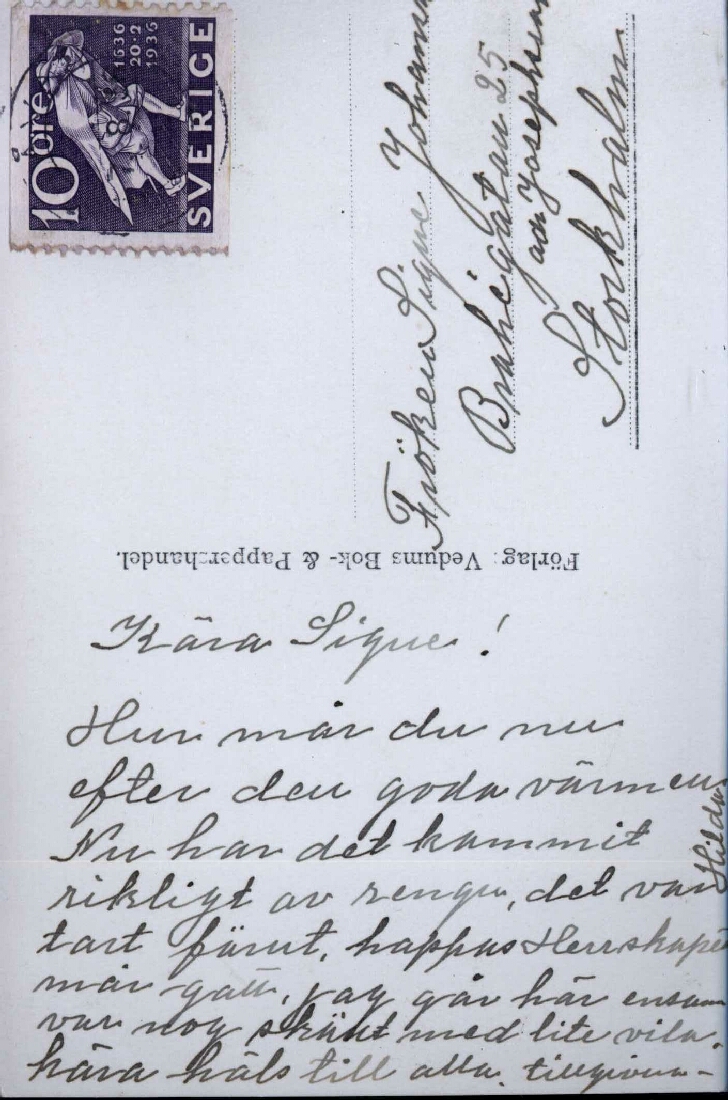 10 öre
1636
20·2
1936
SVERIGE
Fröken Signe
Brahegatan 25
Stockholm
Förlag: Vedums Bok- & Pappershandel.
Kära Signe!
Hur mår du nu
efter den goda värmen
Nu har det kommit
rikligt av rengn, det var
tort förut, hoppas Herrskapet
mår gott, jag går här ensam
var nog skönt med lite vila.
kära häls till alla. tillgivna-
Hilda